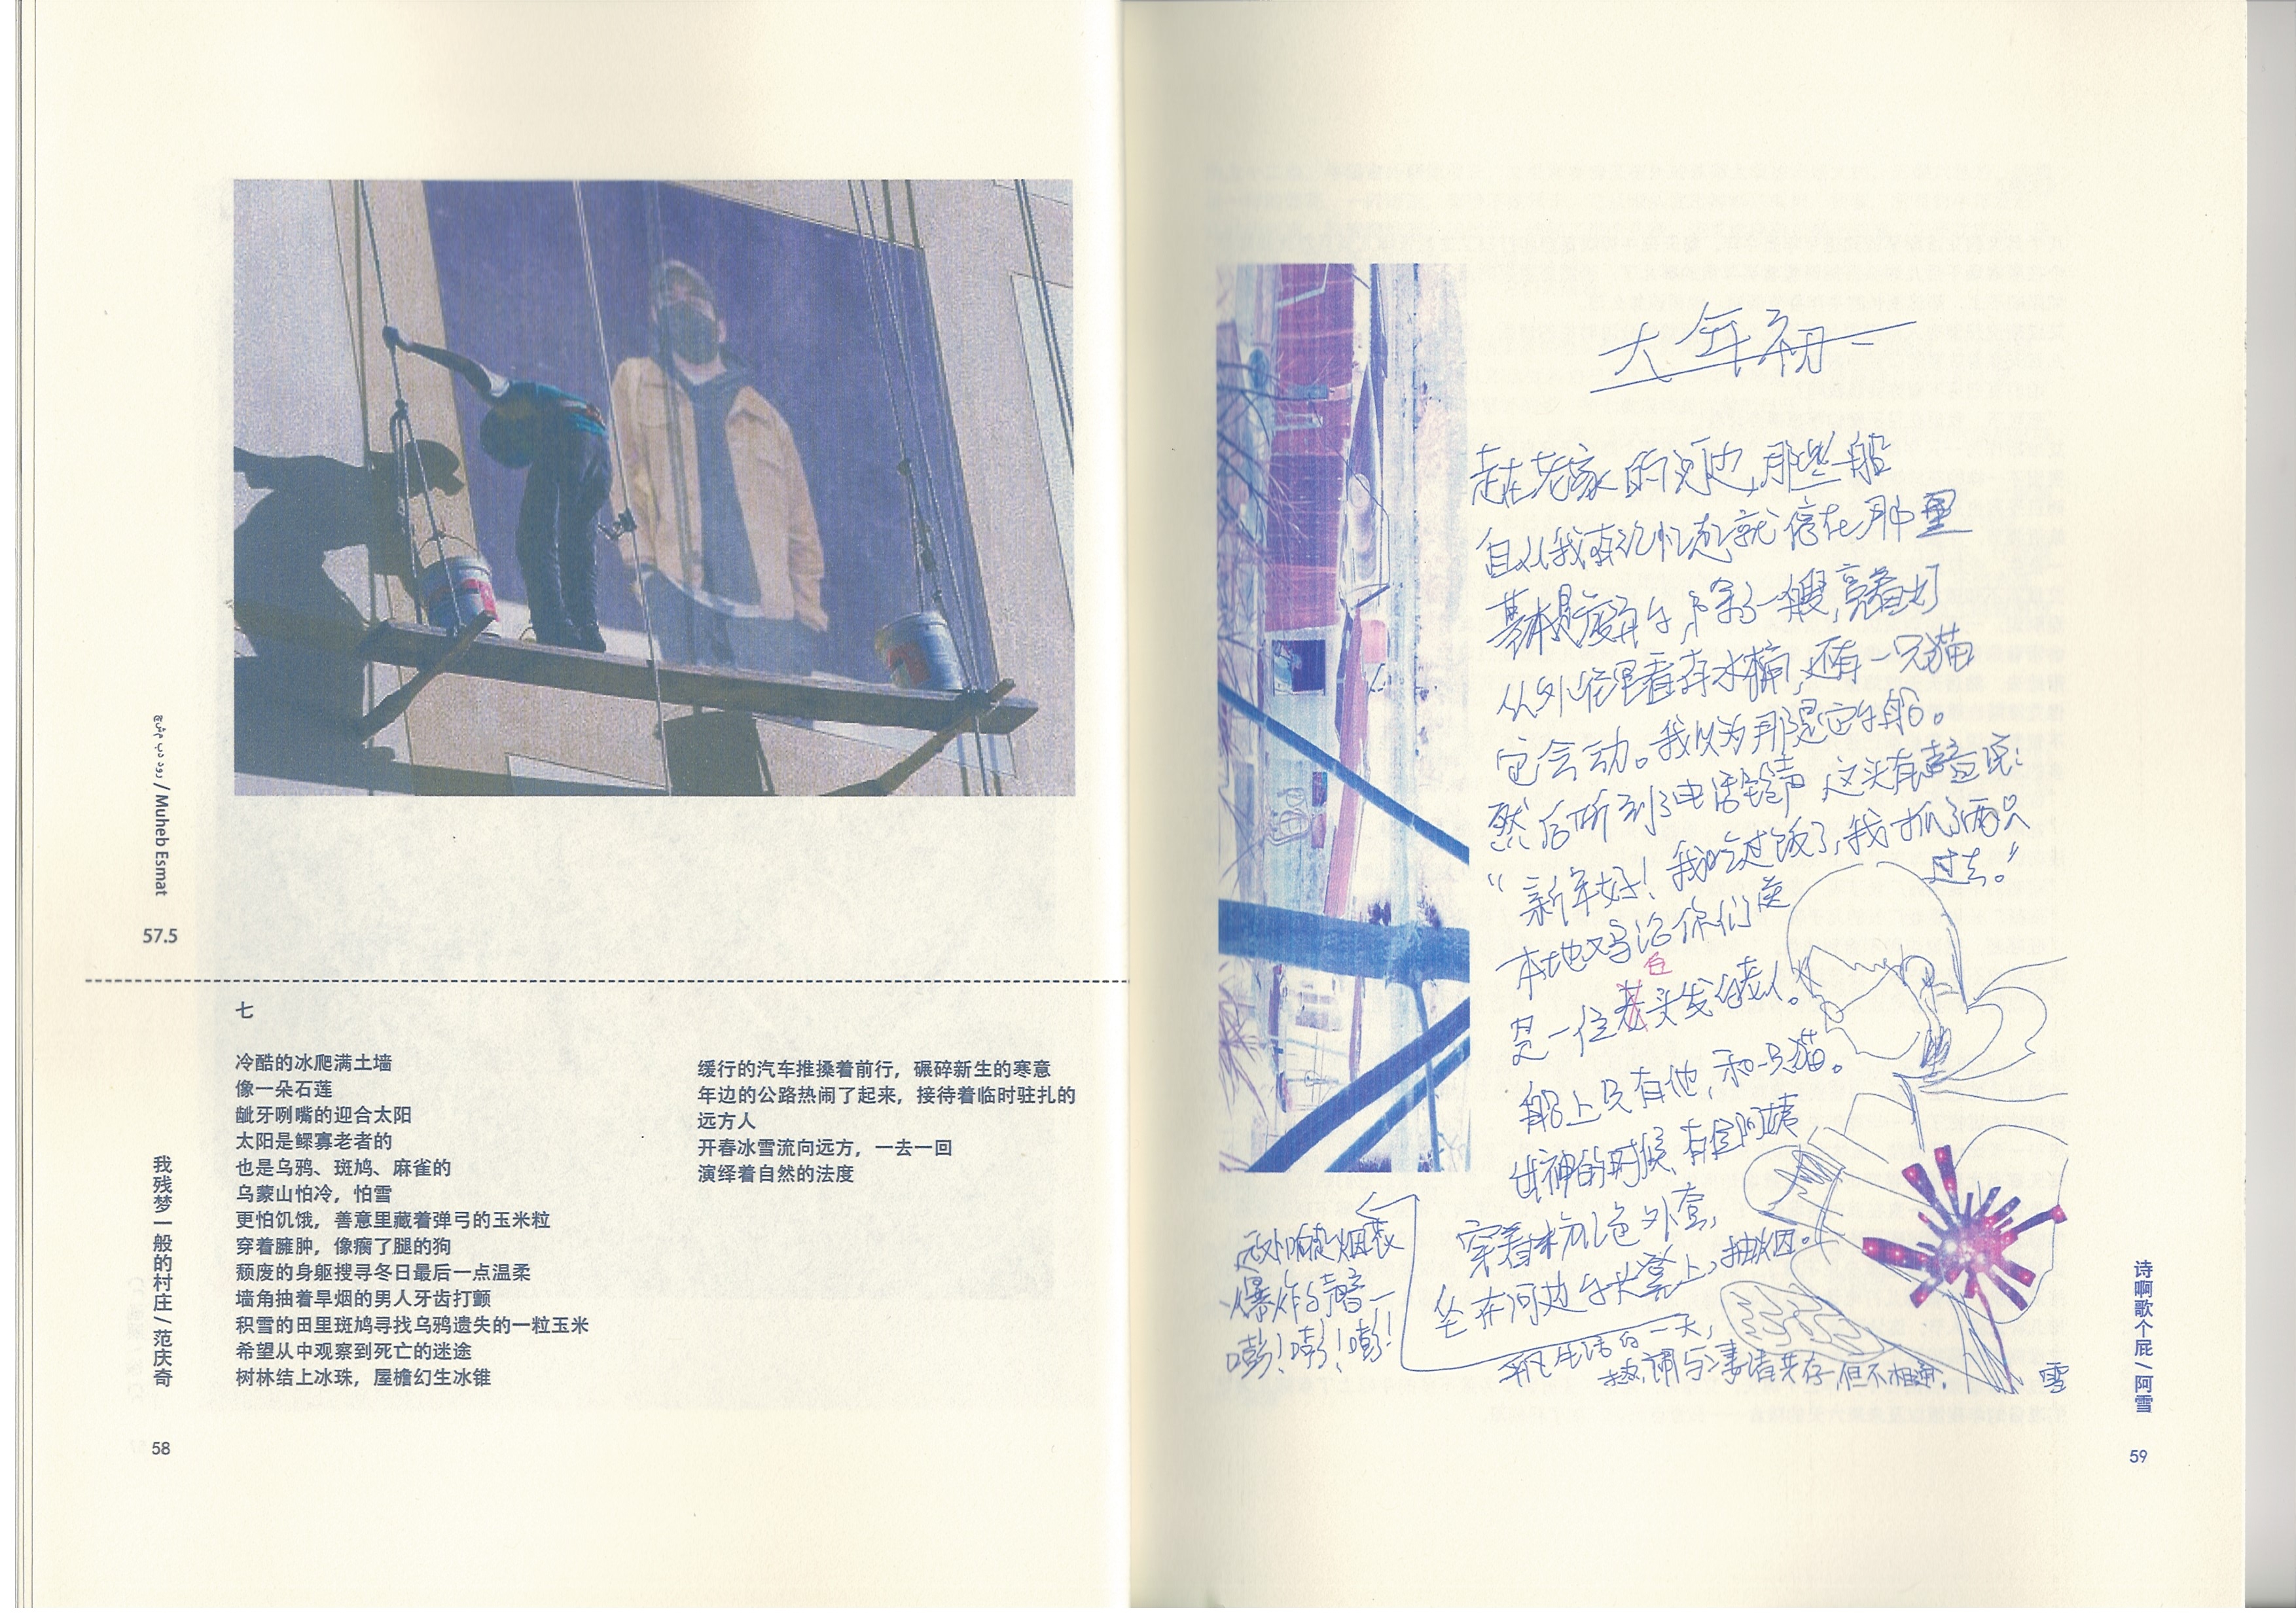 / Muheb Esmat
57.5
七
冷酷的冰爬满土墙
像一朵石莲
龇牙咧嘴的迎合太阳
太阳是鳏寡老者的
也是乌鸦、斑鸠、麻雀的
乌蒙山怕冷，怕雪
更怕饥饿，善意里藏着弹弓的玉米粒
穿着臃肿，像瘸了腿的狗
颓废的身躯搜寻冬日最后一点温柔
墙角抽着旱烟的男人牙齿打颤
积雪的田里斑鸠寻找乌鸦遗失的一粒玉米
希望从中观察到死亡的迷途
树林结上冰珠，屋檐幻生冰锥
缓行的汽车推搡着前行，碾碎新生的寒意
年边的公路热闹了起来，接待着临时驻扎的
远方人
开春冰雪流向远方，一去一回
演绎着自然的法度
我残梦一般的村庄 / 范庆奇
58
大年初一
走在老家的河边，那些船
自从我有记忆起就停在那里
基本是废弃的，除了一艘，亮着灯
从外往里看有水桶，还有一只猫
它会动。我以为那是它的船。
然后听到了电话铃声 这头有声音说：
“新年好！我吃过饭了，我抓了两只
过去。”
本地鸡给你们
是一位白头发的老人。
船上只有他，和一只猫。
出神的时候，有個阿姨
穿着粉色外套，
坐在河边的火凳上，抽烟。
爆炸的声音一
嘭！嘭！嘭！
生活的一天，
热闹与凄清共存，但不相通。
雪
诗啊歌个屁 / 阿雪
59